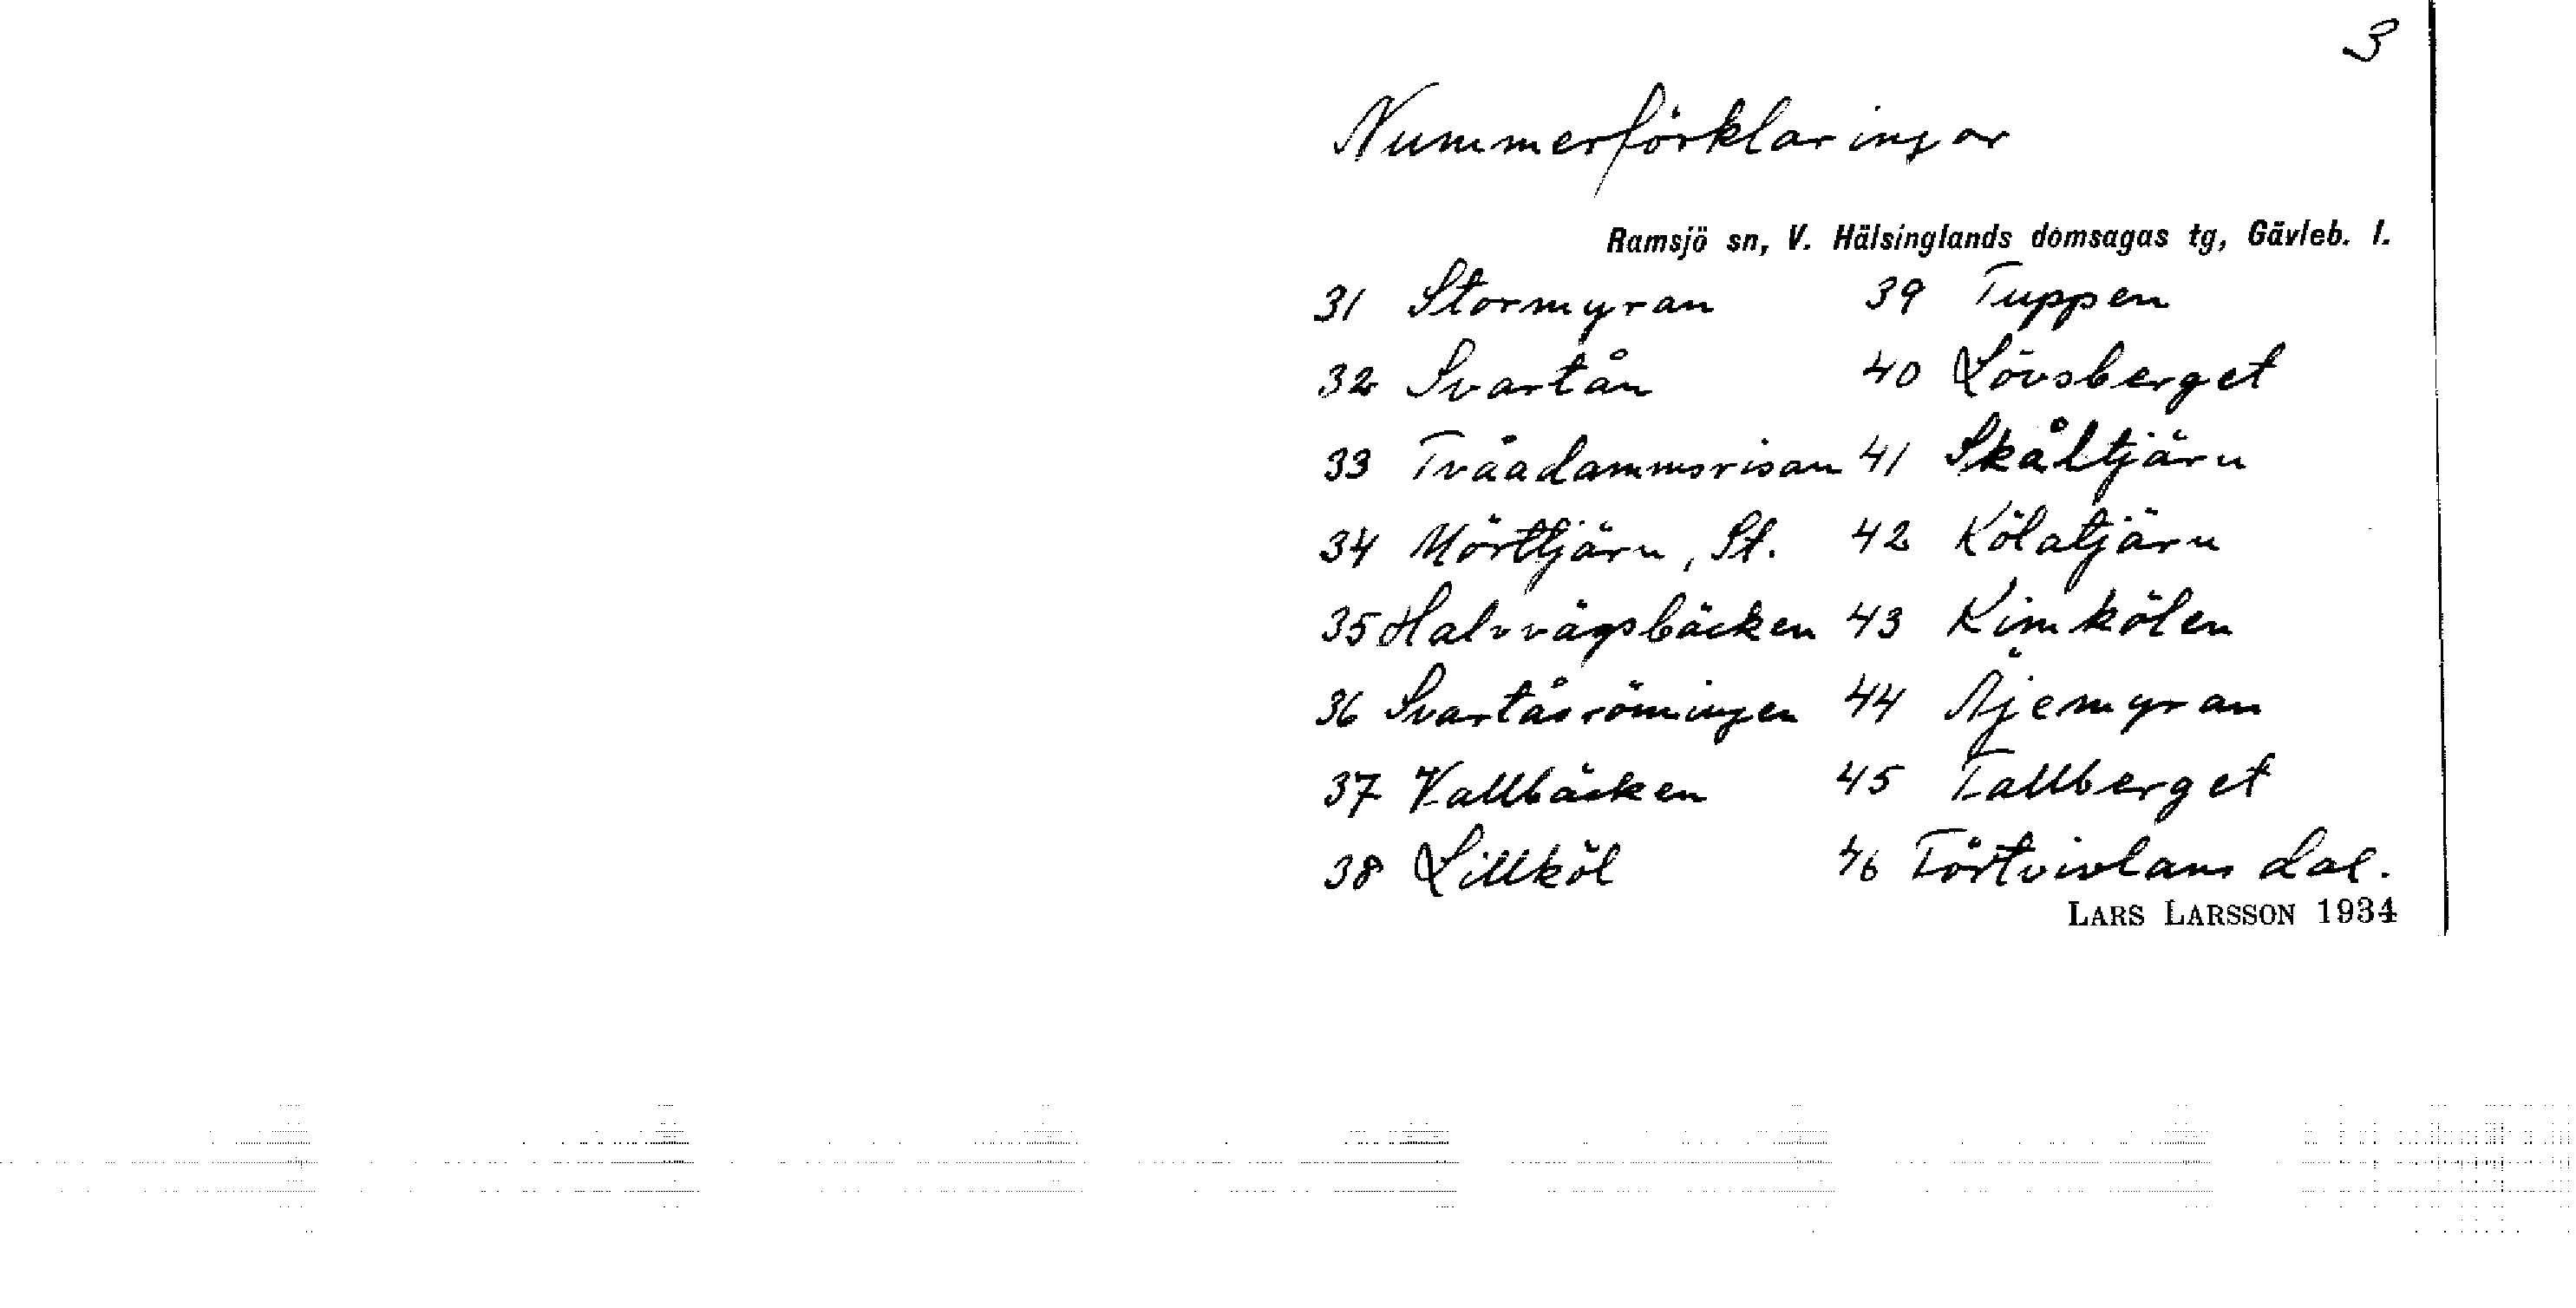 3
Nummerförklaringar
Ramsjö sn, V. Hälsinglands domsagas tg, Gävleb. l.
31 Stormyran 39 Tuppen
32 Svartån 40 Lövsberget
33 Tvåadammsrisan 41 Skåltjärn
34 Mörttjärn, St. 42 Kölatjärn
35 Halvvägsbäcken 43 Kimkölen
36 Svartåsröningen 44 Äjemyran
37 Vallbäcken 45 Tallberget
38 Lillköl 46 Förtvivlans dal.
LARS LARSSON 1934